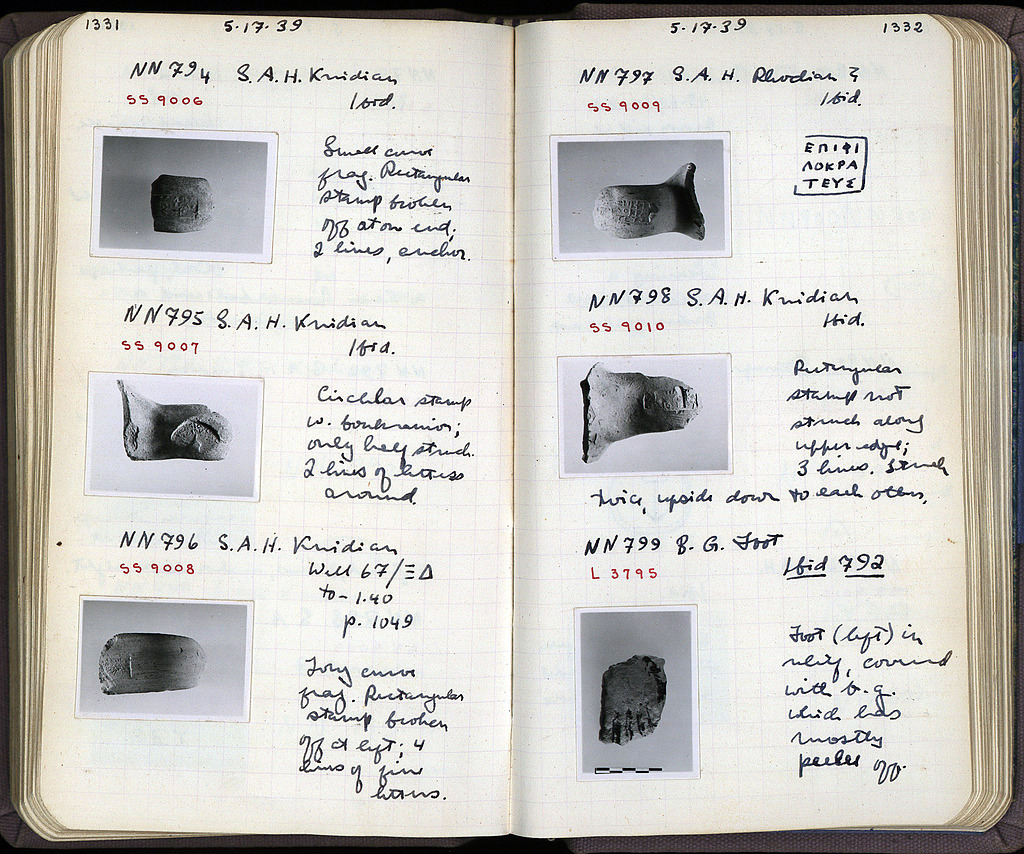 1331
5·17·39
NN 794 S. A. H. Knidian
Ibid.
SS 9006
Small curve
frag. Rectangular
stamp broken
off at one end;
2 lines, anchor.
NN 795 S. A. H. Knidian
Ibid.
SS 9007
Circular stamp
w. boukranion;
only half struck.
2 lines of letters
around
NN 796 S. A. H. Knidian
SS 9008
Well 67/ΞΔ
to - 1.40
p. 1049
Long curve
frag. Rectangular
stamp broken
off at left; 4
lines of fine
letters.
5·17·39
1332
NN 797 S. A. H. Rhodian
Ibid.
SS 9009
ΕΠΙΦΙ
ΛΟΚΡΑ
ΤΕΥΣ
NN 798 S. A. H. Knidian
Ibid.
SS 9010
Rectangular
stamp not
struck along
upper edge;
3 lines. Struck
twice, upside down to each other.
NN 799 B. G. Foot
Ibid 792
L 3795
Foot (left) in
relief, covered
with b. g.
which has
mostly
peeled off.